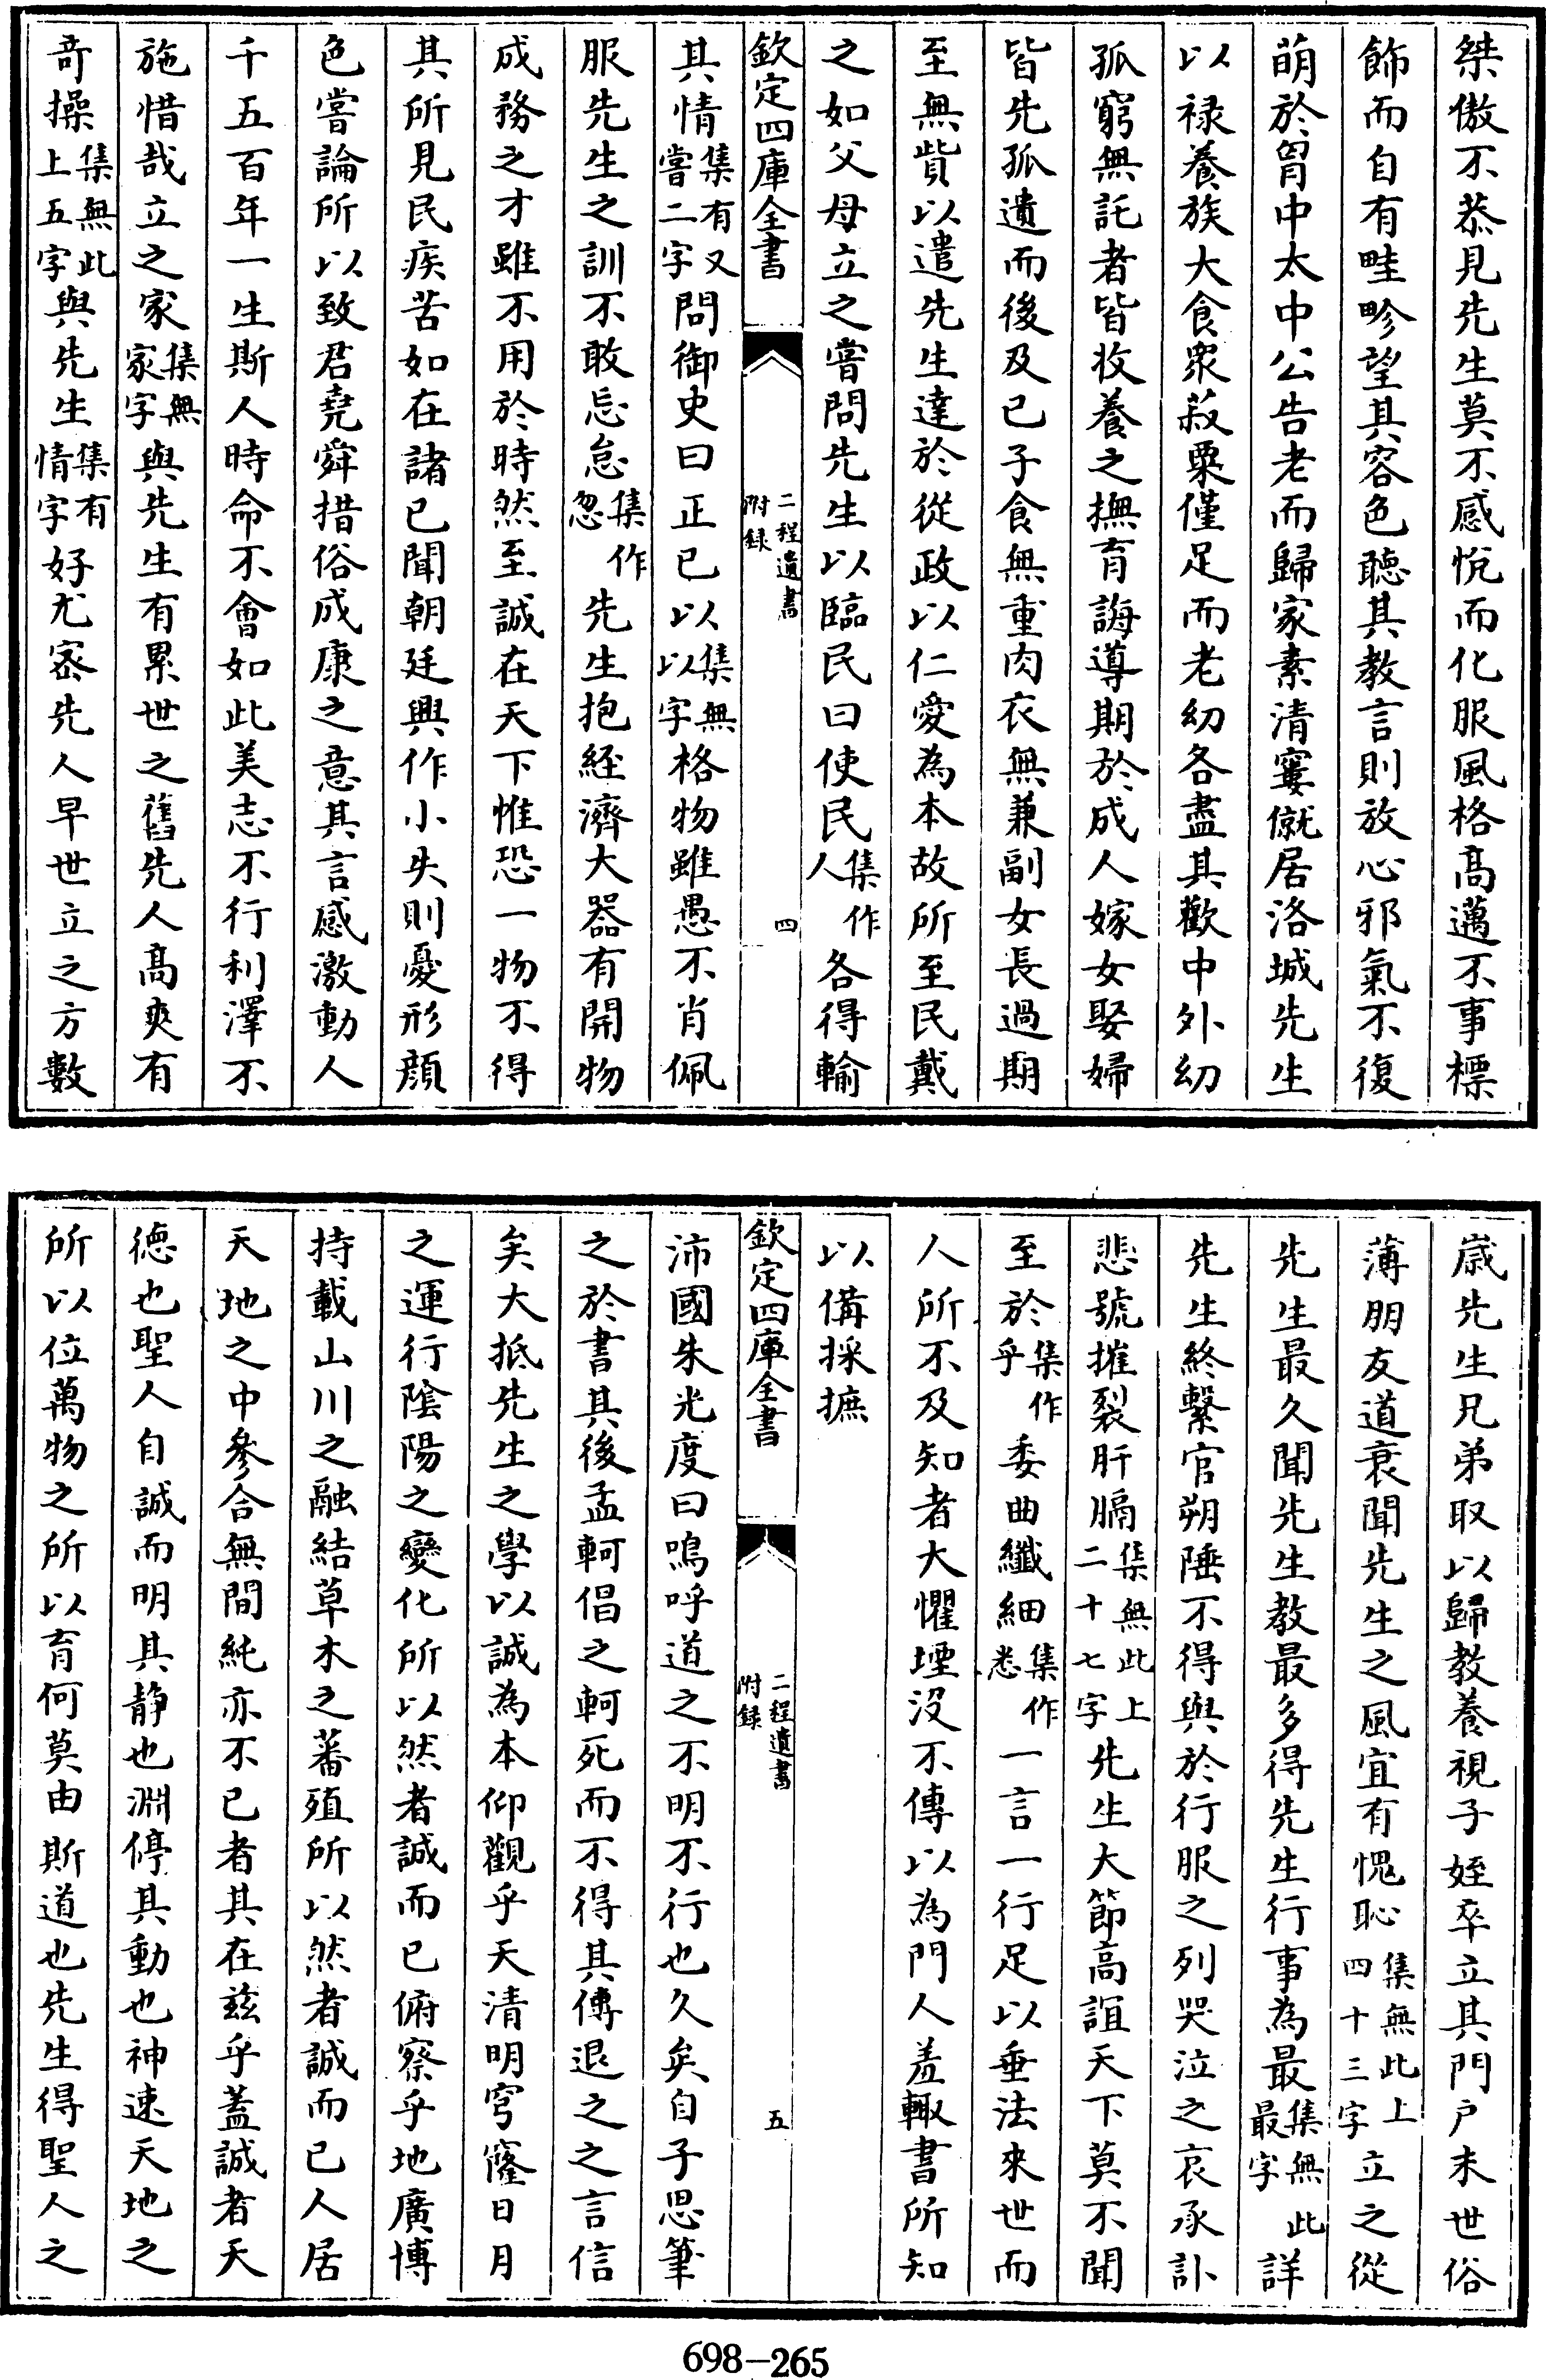 桀傲不恭見先生莫不感悅而化服風格高邁不事標
飾而自有畦畛望其容色聽其教言則放心邪氣不復
萌於胷中太中公告老而歸家素清窶僦居洛城先生
以禄養族大食衆菽粟僅足而老幼各盡其歡中外幼
孤窮無託者皆收養之撫育誨導期於成人嫁女娶婦
皆先孤遺而後及已子食無重肉衣無兼副女長過期
至無貲以遣先生達於從政以仁愛為本故所至民戴
之如父母立之嘗問先生以臨民曰使民集作人各得輸
欽定四庫全書
二程遺書附録
四
其情集有又嘗二字問御史曰正已以集無以字格物雖愚不肖佩
服先生之訓不敢忘怠集作忽先生抱經濟大器有開物
成務之才雖不用於時然至誠在天下惟恐一物不得
其所見民疾苦如在諸已聞朝廷興作小失則憂形顔
色嘗論所以致君堯舜措俗成康之意其言感激動人
千五百年一生斯人時命不會如此美志不行利澤不
施惜哉立之家集無家字與先生有累世之舊先人高爽有
奇操集無此上五字與先生集有情字好尤宻先人早世立之方數
歲先生兄弟取以歸教養視子姪卒立其門户末世俗
薄朋友道衰聞先生之風宜有愧恥集無此上四十三字立之從
先生最久聞先生教最多得先生行事為最集無此最字詳
先生終繫官朔陲不得與於行服之列哭泣之哀承訃
悲號摧裂肝膈集無此上二十七字先生大節高誼天下莫不聞
至於集作乎委曲纖細集作悉一言一行足以垂法來世而
人所不及知者大懼堙没不傳以為門人羞輙書所知
以備採摭
欽定四庫全書
二程遺書附録
五
沛國朱光庭曰嗚呼道之不明不行也久矣自子思筆
之於書其後孟軻倡之軻死而不得其傳退之之言信
矣大抵先生之學以誠為本仰觀乎天清明穹窿日月
之運行陰陽之變化所以然者誠而已俯察乎地廣博
持載山川之融結草木之蕃殖所以然者誠而已人居
天地之中參合無間純亦不已者其在兹乎蓋誠者天
德也聖人自誠而明其静也淵停其動也神速天地之
所以位萬物之所以育何莫由斯道也先生得聖人之
698-265